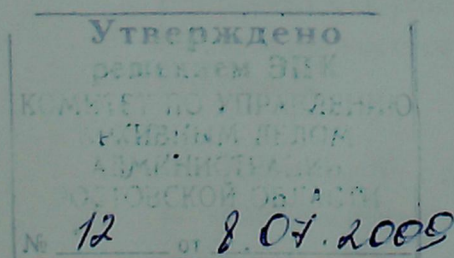 Утверждено
решением ЭПК
КОМИТЕТ ПО УПРАВЛЕНИЮ
АРХИВНЫМ ДЕЛОМ
АДМИНИСТРАЦИИ
РОСТОВСКОЙ ОБЛАСТИ
№ 12 от 8 07. 2009